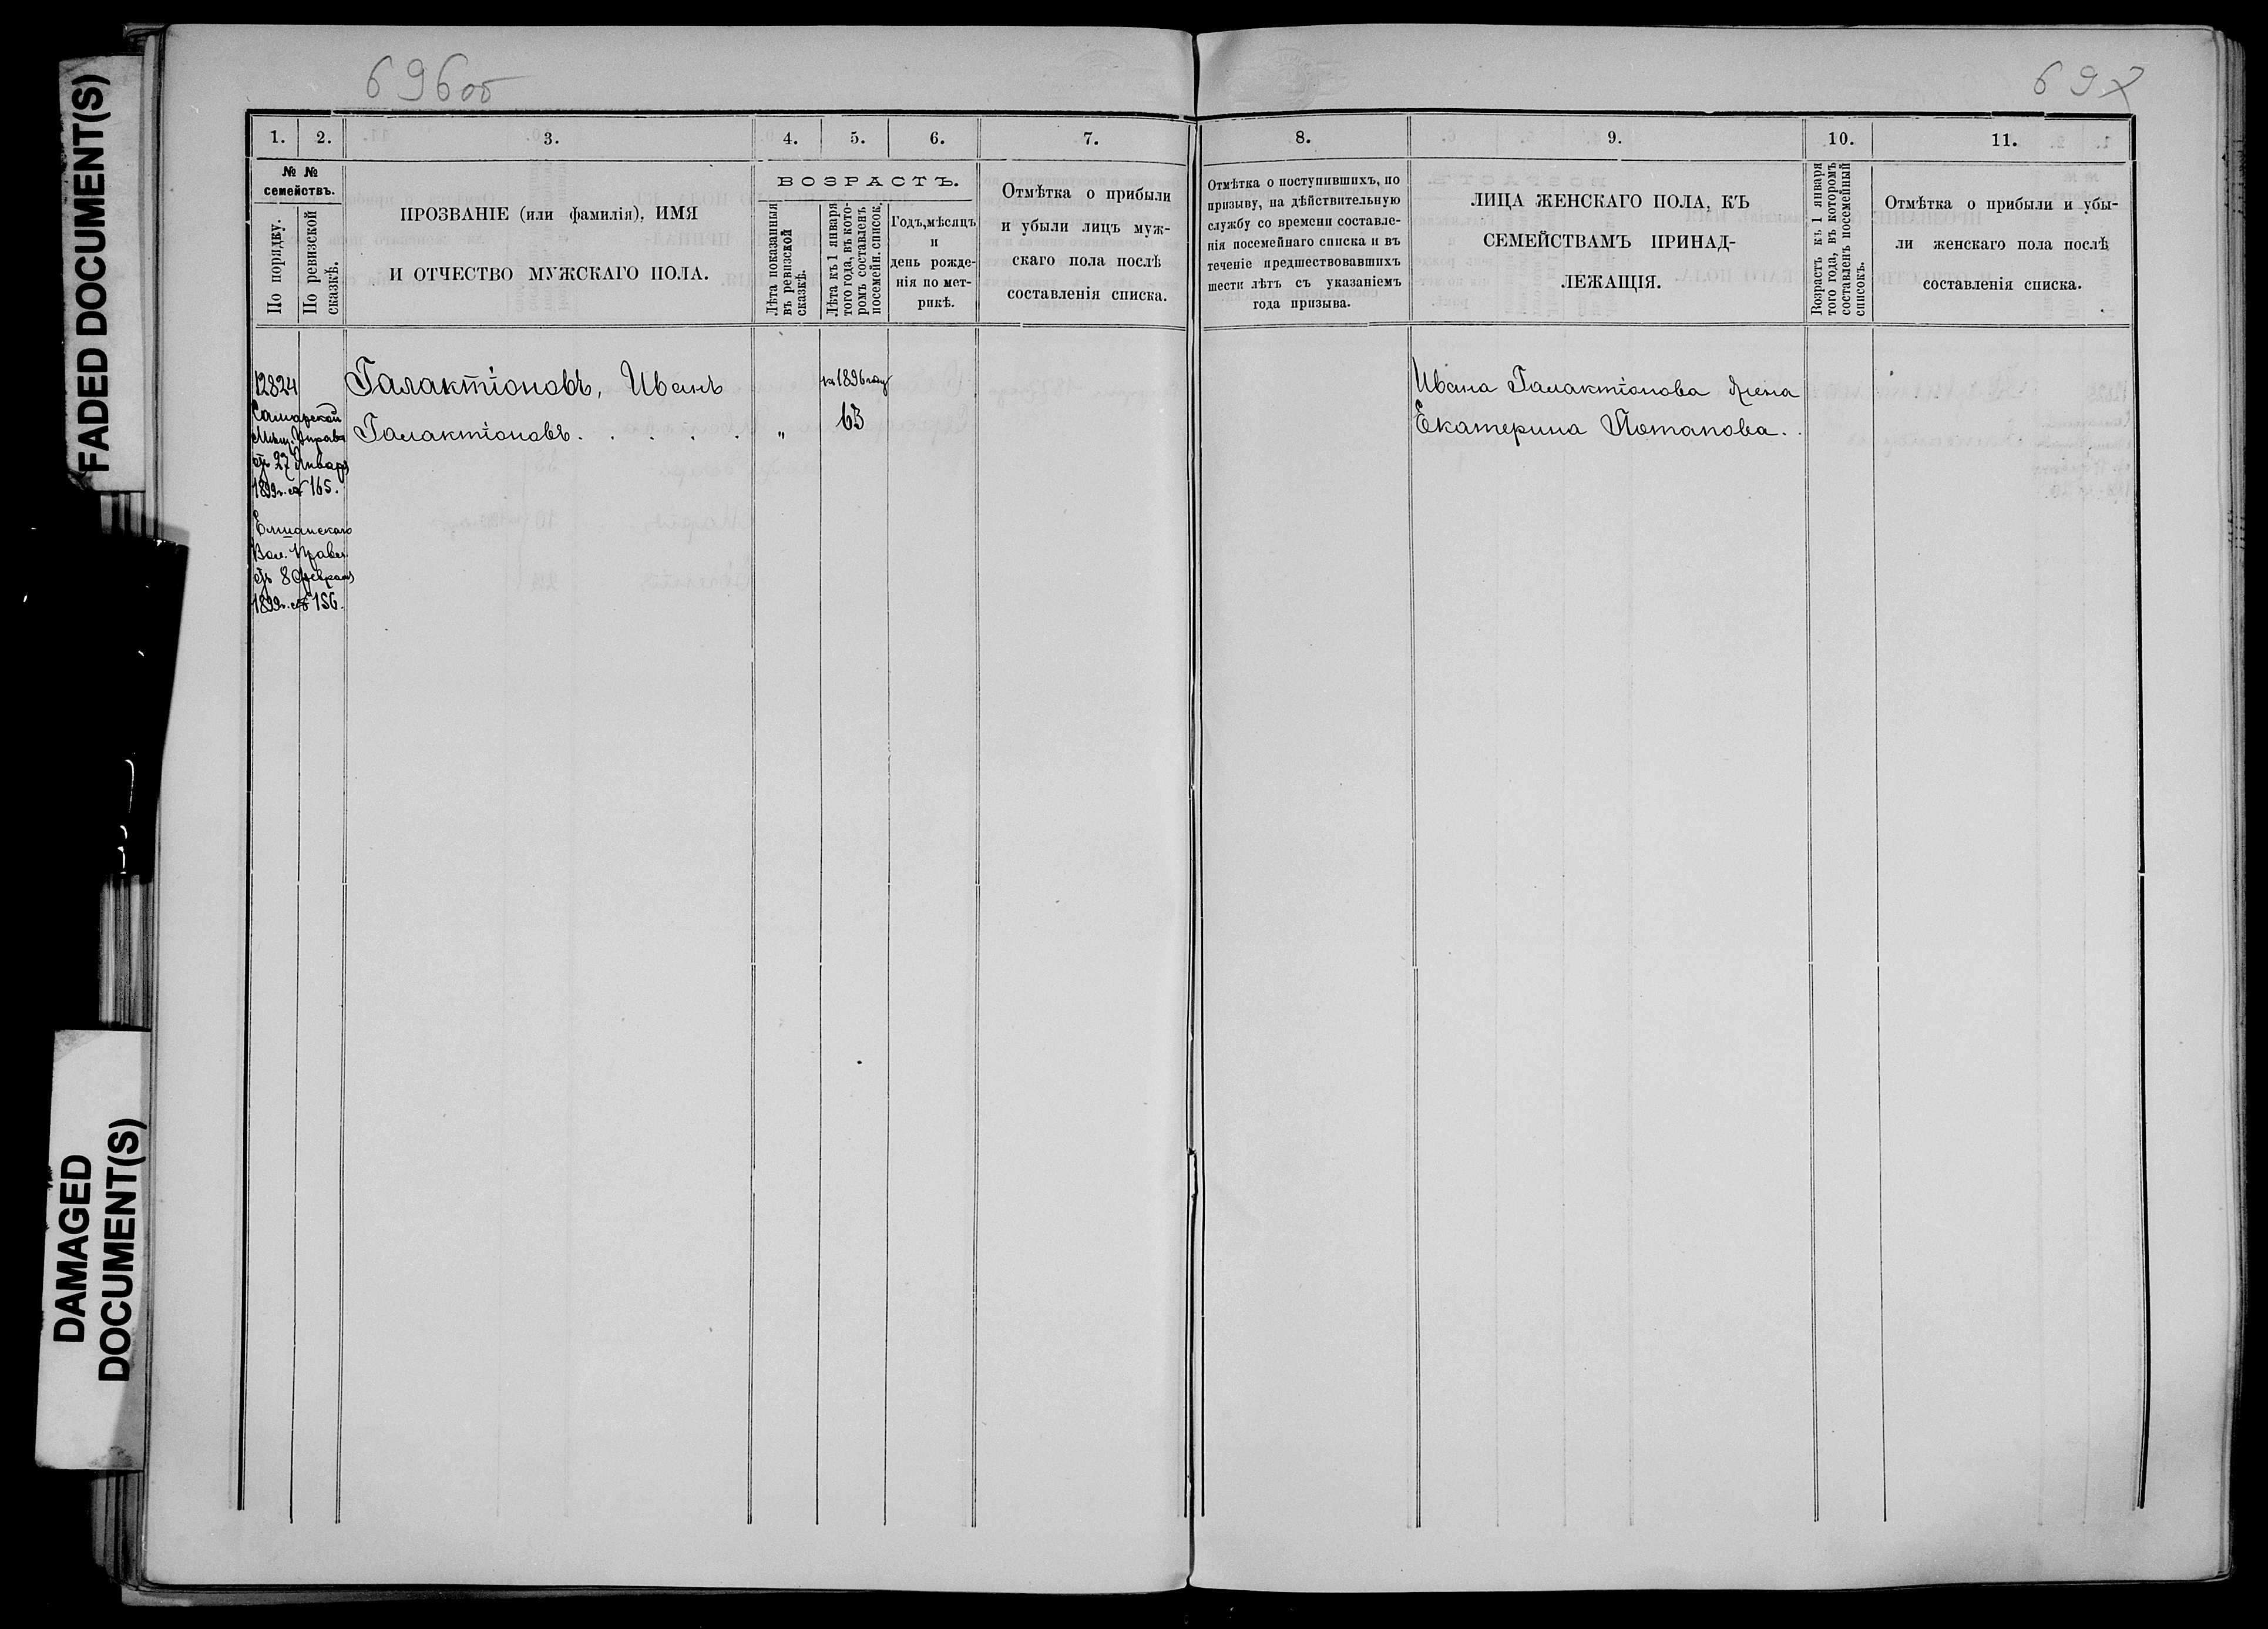 FADED DOCUMENT(S)
DAMAGED
DOCUMENT(S)
696об
697
1.
2.
3.
4.
5.
6.
7.
№ №
семействъ.
По порядку.
По ревизской
сказкѣ.
ПРОЗВАНІЕ (или фамилія), ИМЯ
И ОТЧЕСТВО МУЖСКАГО ПОЛА.
ВОЗРАСТЪ.
Лѣта показанныя
въ ревизской
сказкѣ.
Лѣта къ 1 января
того года, въ кото-
ромъ составленъ
посемейн. список.
Годъ, мѣсяцъ
и
день рожде-
нія по мет-
рикѣ.
Отмѣтка о прибыли
и убыли лицъ муж-
скаго пола послѣ
составленія списка.
12824
Самарской
Мѣщ. Управы
отъ 27 Января
1899 г. № 165.
Елшанскаго
Вол. Правл.
отъ 8 февраля
1899 г. № 156.
Галактіоновъ, Иванъ
Галактіоновъ. . . . . „
на 1896 году
63
8.
9.
10.
11.
Отмѣтка о поступившихъ, по
призыву, на дѣйствительную
службу со времени составле-
нія посемейнаго списка и въ
теченіе предшествовавшихъ
шести лѣтъ съ указаніемъ
года призыва.
ЛИЦА ЖЕНСКАГО ПОЛА, КЪ
СЕМЕЙСТВАМЪ ПРИНАД-
ЛЕЖАЩІЯ.
Возрастъ къ 1 января
того года, въ которомъ
составленъ посемейный
списокъ.
Отмѣтка о прибыли и убы-
ли женскаго пола послѣ
составленія списка.
Ивана Галактіонова жена
Екатерина Потапова. .